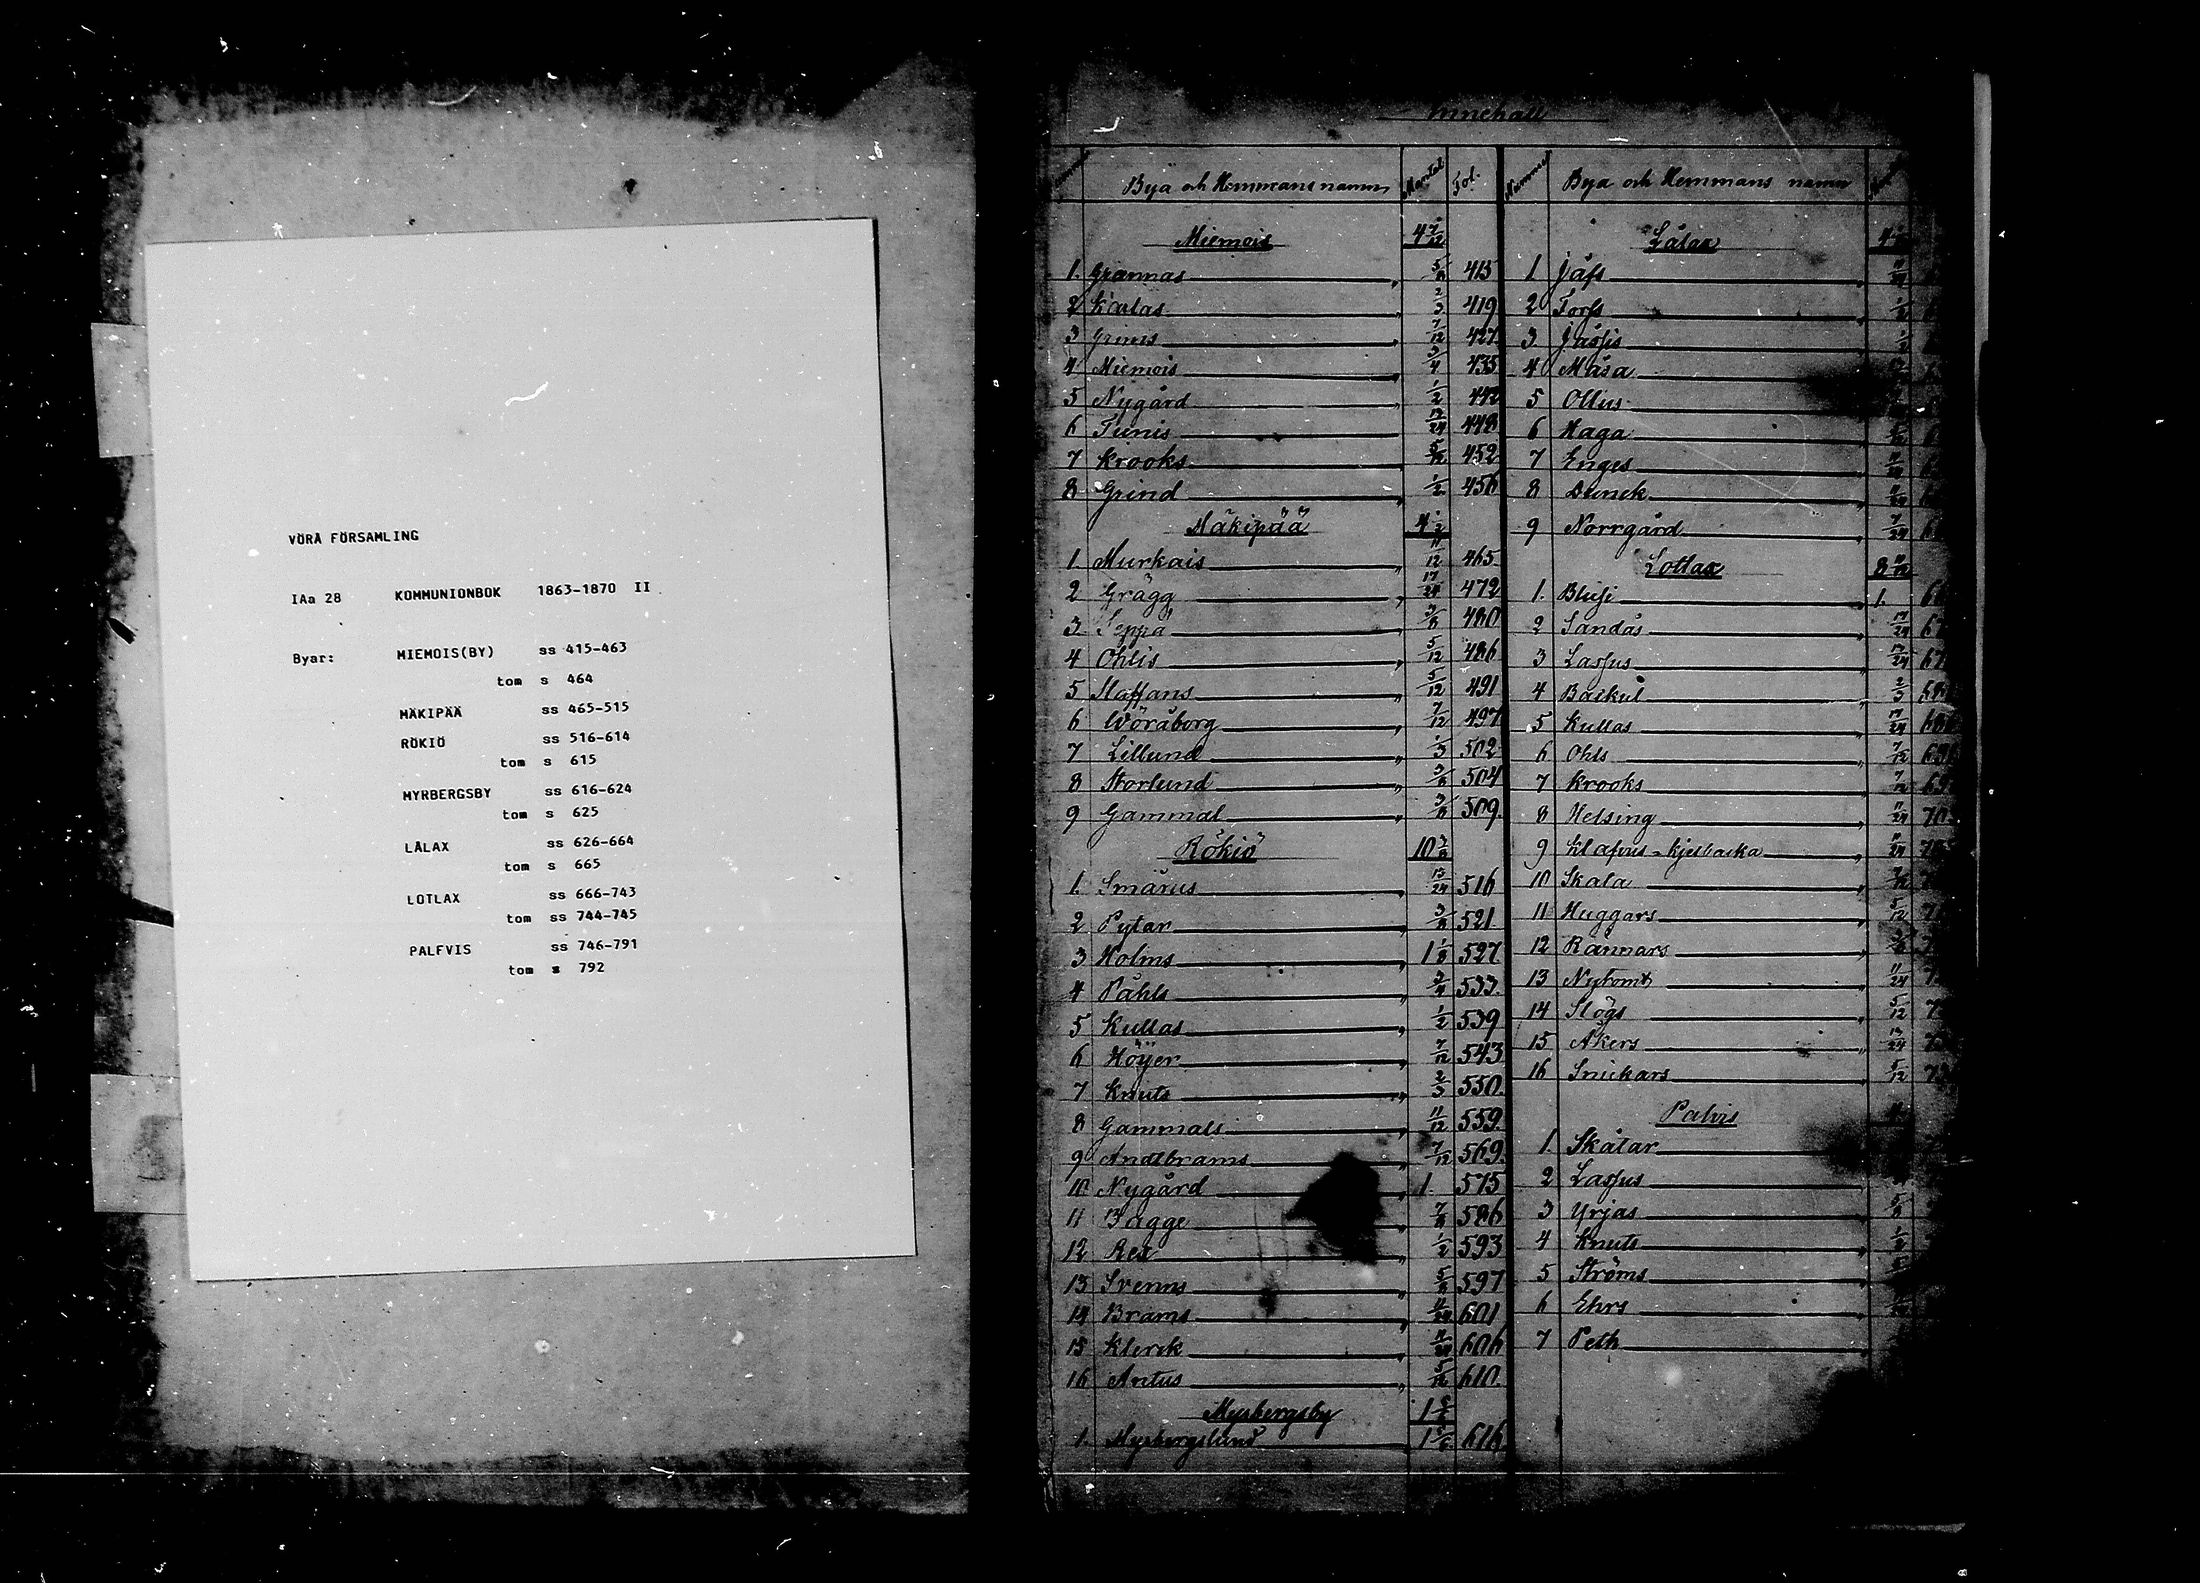 VÖRÅ FÖRSAMLING
IAa 28 KOMMUNIONBOK 1863-1870 II
Byar: MIEMOIS(BY) ss 415-463
tom s 464
MÄKIPÄÄ ss 465-515
RÖKIÖ ss 516-614
tom s 615
MYRBERGSBY ss 616-624
tom s 625
LÅLAX ss 626-664
tom s 665
LOTLAX ss 666-743
tom ss 744-745
PALFVIS ss 746-791
tom s 792
Innehåll
Bya och Hemmans namn Mantal Fol.
Miemois 4 7/12
1. Grannas 5/8 415
2 Karlas 2/3 419
3 Grims 7/12 427
4 Miemois 3/4 435
5 Nygård 1/2 442
6 Tunis 448
7 Krooks 5/12 452
8 Grind 1/2 456
Mäkipää 4 1/2
1. Murkais 11/12 465
2 Grägg 17/24 472
3 Seppä 3/8 480
4 Ohlis 5/12 486
5 Staffans 5/12 491
6 Wöråborg 7/12 497
7 Lillund 1/3 502
8 Storlund 3/8 504
9 Gammal 3/8 509
Rökiö 10 3/8
1. Smärus 13/24 516
2 Pytar 3/8 521
3 Holms 1 1/8 527
4 Påhls 3/4 533
5 Kullas 1/2 539
6 Höijer 7/12 543
7 Knuts 2/3 550
8 Gammals 11/12 559
9 Andlbrams 7/12 569
10 Nygård 1. 575
11 Bagge 7/8 586
12 Rex 1/2 593
13 Svenns 5/8 597
14 Brams 11/24 601
15 Klerck 11/24 606
16 Antus 5/12 610
Myrbergsby 1 5/6
1. Myrbergslund 1 5/6 616
Nummer Bya och Hemmans namn
Lålax 4
1 Jåfs 11/24
2 Torfs 1/2
3 Jåssis 1/2
4 Måsa
5 Ollus
6 Haga 5/12
7 Enges 11/24
8 Dunck 11/24
9 Norrgård 7/24
Lotlax 8 11/12
1. Blusi 1.
2 Sandås 17/24
3 Lassus 13/24
4 Backul 2/3
5 Kullas 17/24
6 Ohls 7/12
7 Krooks 7/12
8 Helsing 11/24
9 Klafus-Kjellbacka 11/24
10 Skata
11 Huggars 5/12
12 Rännars
13 Nytomt 11/24
14 Slögs 5/12
15 Åkers 13/24
16 Snickars 5/12
Palvis
1. Skåtar
2 Lassus
3 Yrjas 5/8
4 Knuts 1/2
5 Ströms
6 Ehrs
7 Peth